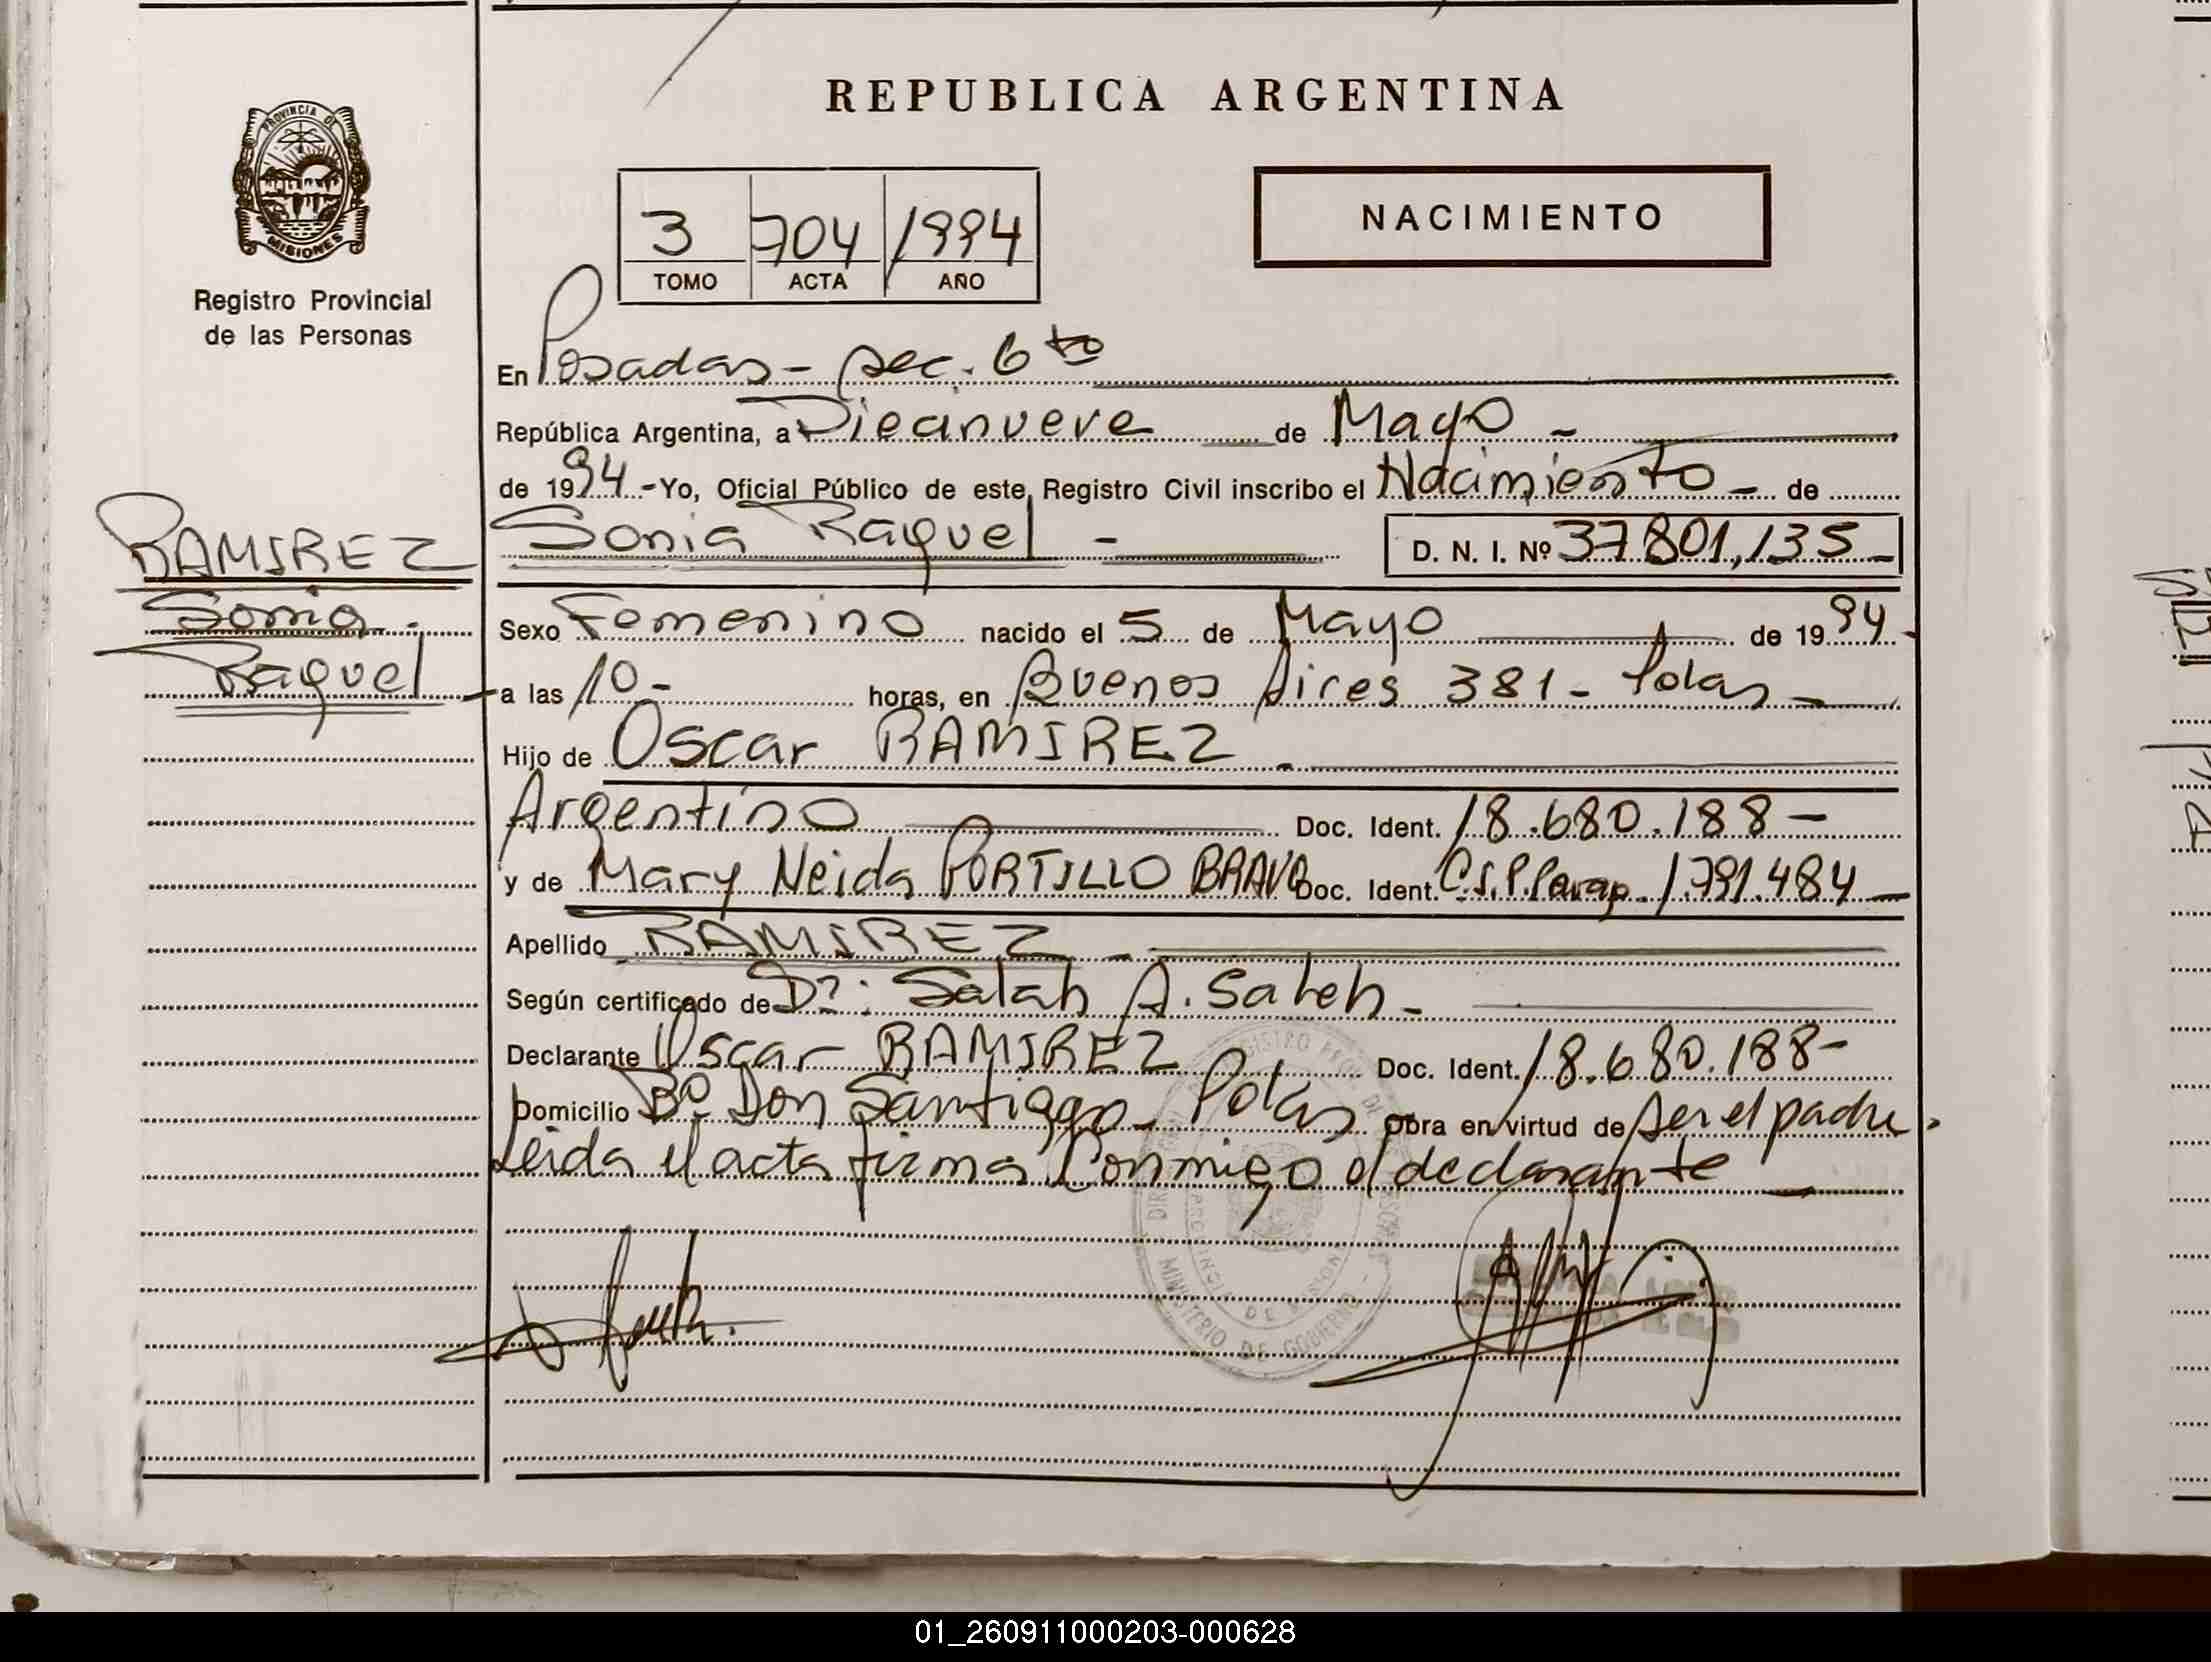 REPUBLICA ARGENTINA
PROVINCIA DE
MISIONES
Registro Provincial
de las Personas
3 704 1994
TOMO ACTA AÑO
NACIMIENTO
En Posadas - sec. 6to
República Argentina, a Diecinueve de Mayo -
de 1994 - Yo, Oficial Público de este Registro Civil inscribo el Nacimiento - de
Sonia Raquel - D. N. I. Nº 37.801,135 -
RAMIREZ
Sonia
Raquel
Sexo Femenino nacido el 5 de Mayo de 1994 -
a las 10 - horas, en Buenos Aires 381 - Pdas -
Hijo de Oscar RAMIREZ
Argentino Doc. Ident. 18.680.188 -
y de Mary Neida PORTILLO BRAVO Doc. Ident. C.I.P. Parag. 1.791.484 -
Apellido RAMIREZ -
Según certificado de Dr: Salah A. Saleh -
Declarante Oscar RAMIREZ Doc. Ident. 18.680.188 -
Domicilio Bº Don Santiago - Pdas Obra en virtud de ser el padre.
Leida el acta firma Conmigo el declarante -
MINISTERIO DE GOBIERNO
01_260911000203-000628